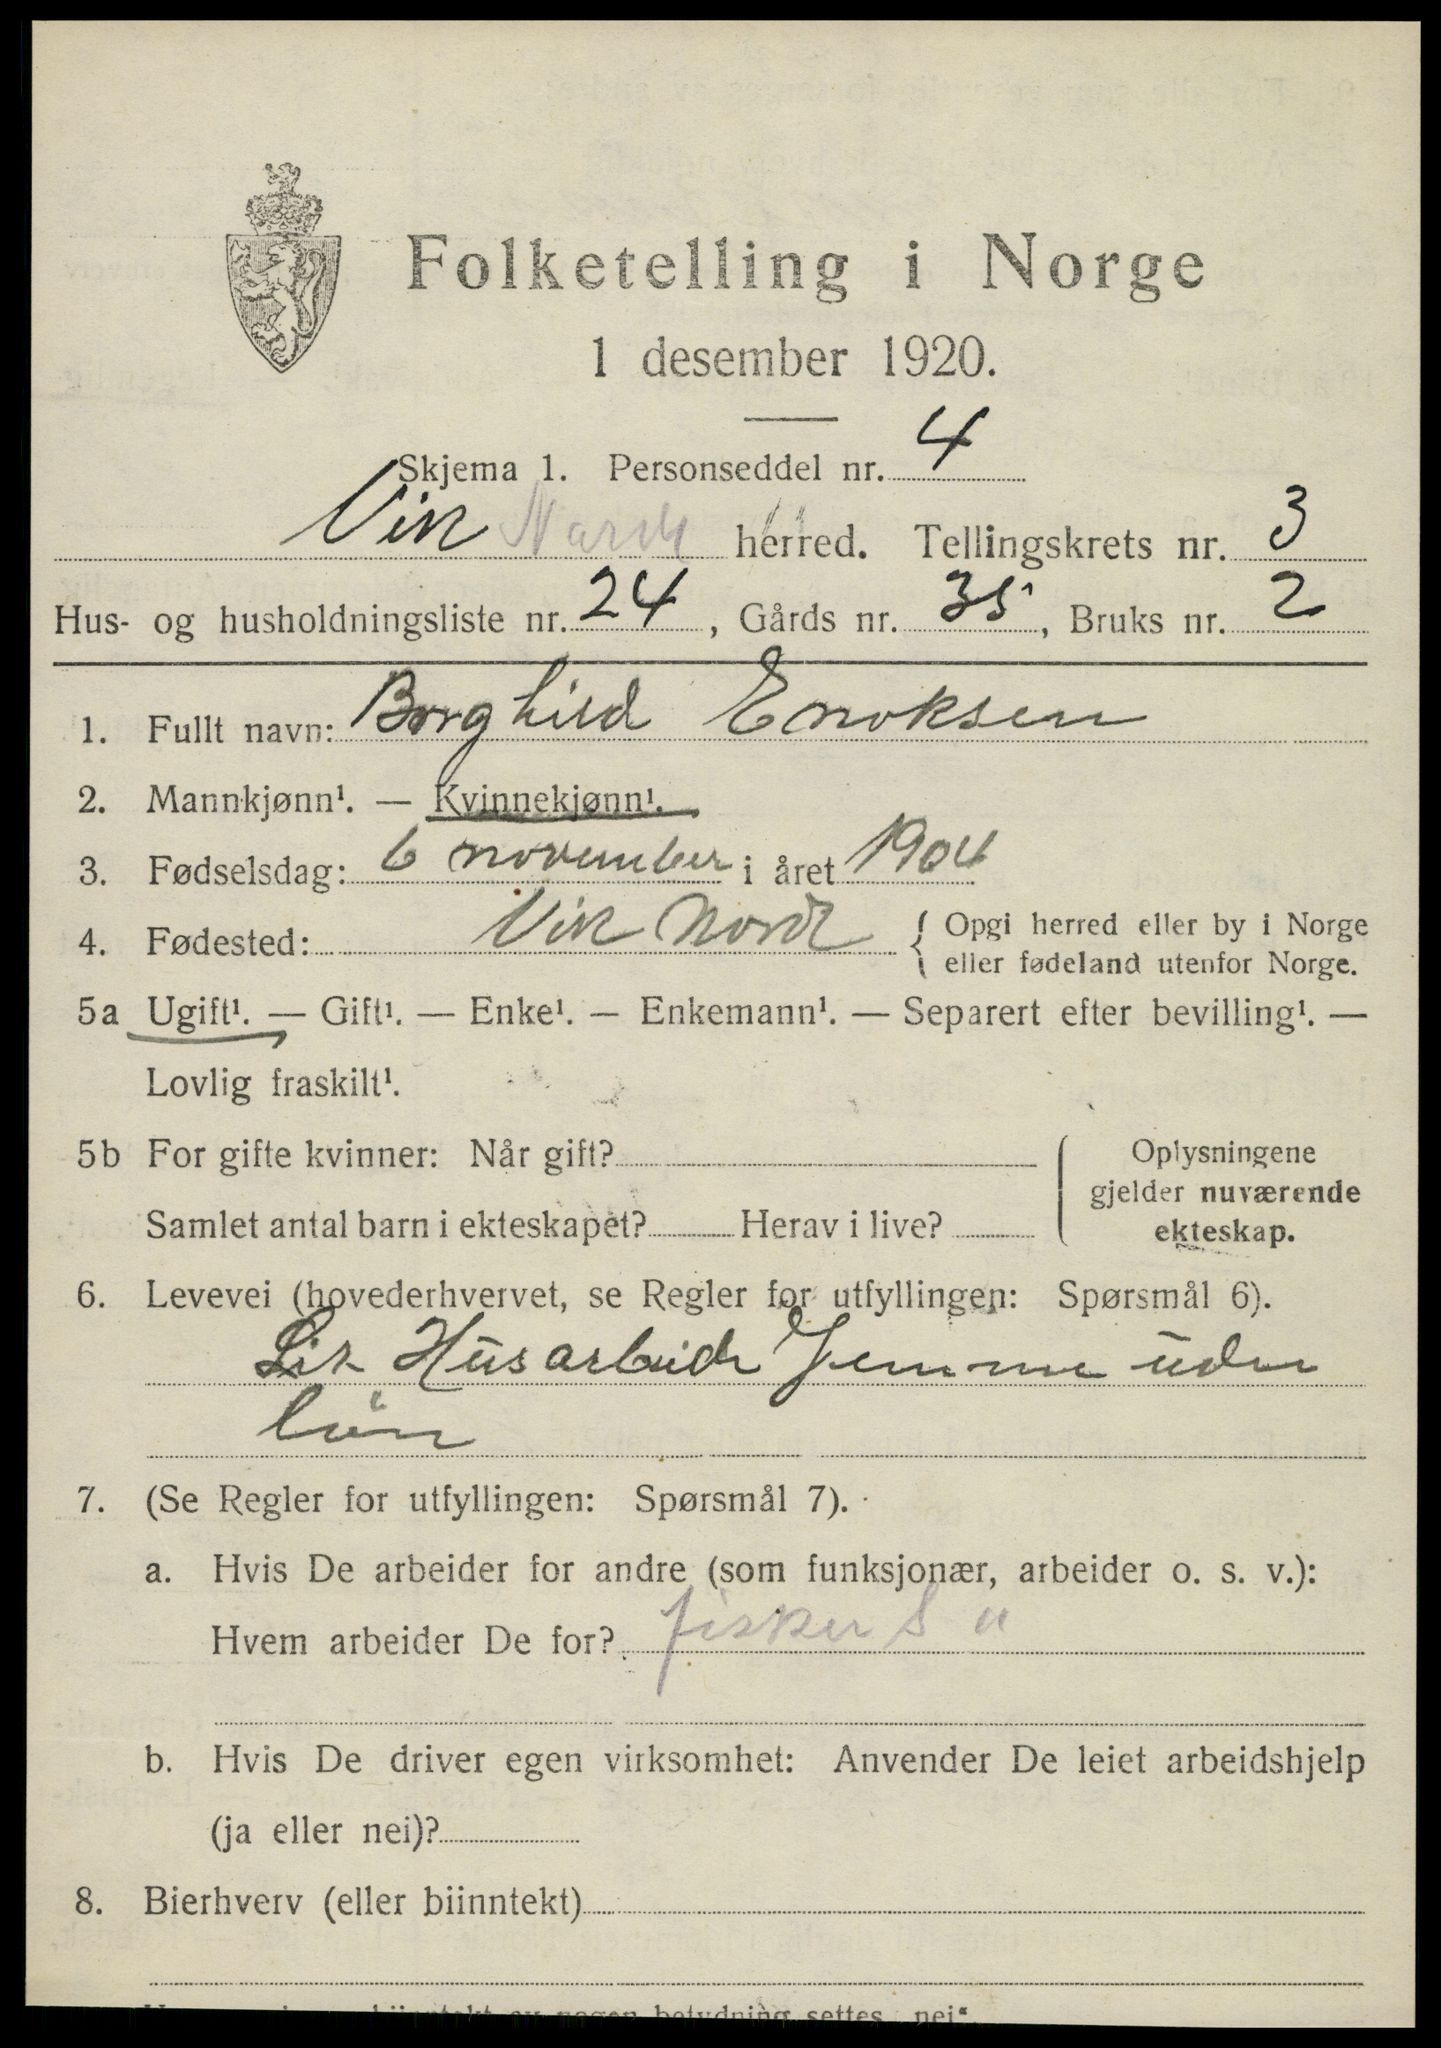 Folketelling i Norge
1 desember 1920.
Skjema 1. Personseddel nr. 4
Vik Nord herred. Tellingskrets nr. 3
Hus- og husholdningsliste nr. 24, Gårds nr. 35, Bruks nr. 2
1. Fullt navn: Borghild Enoksen
2. Mannkjønn¹. — Kvinnekjønn¹.
3. Fødselsdag: 6 november i året 1904
4. Fødested: Vik Nord { Opgi herred eller by i Norge
eller fødeland utenfor Norge.
5a Ugift¹. — Gift¹. — Enke¹. — Enkemann¹. — Separert efter bevilling¹. —
Lovlig fraskilt¹.
5b For gifte kvinner: Når gift?
Samlet antal barn i ekteskapet? Herav i live?
Oplysningene
gjelder nuværende
ekteskap.
6. Levevei (hovederhvervet, se Regler for utfyllingen: Spørsmål 6).
Husarbeide Jemme uden
løn
7. (Se Regler for utfyllingen: Spørsmål 7).
a. Hvis De arbeider for andre (som funksjonær, arbeider o. s. v.):
Hvem arbeider De for? fisker S
b. Hvis De driver egen virksomhet: Anvender De leiet arbeidshjelp
(ja eller nei)?
8. Bierhverv (eller biinntekt)
biinntekt av nogen betydning settes „nei“.